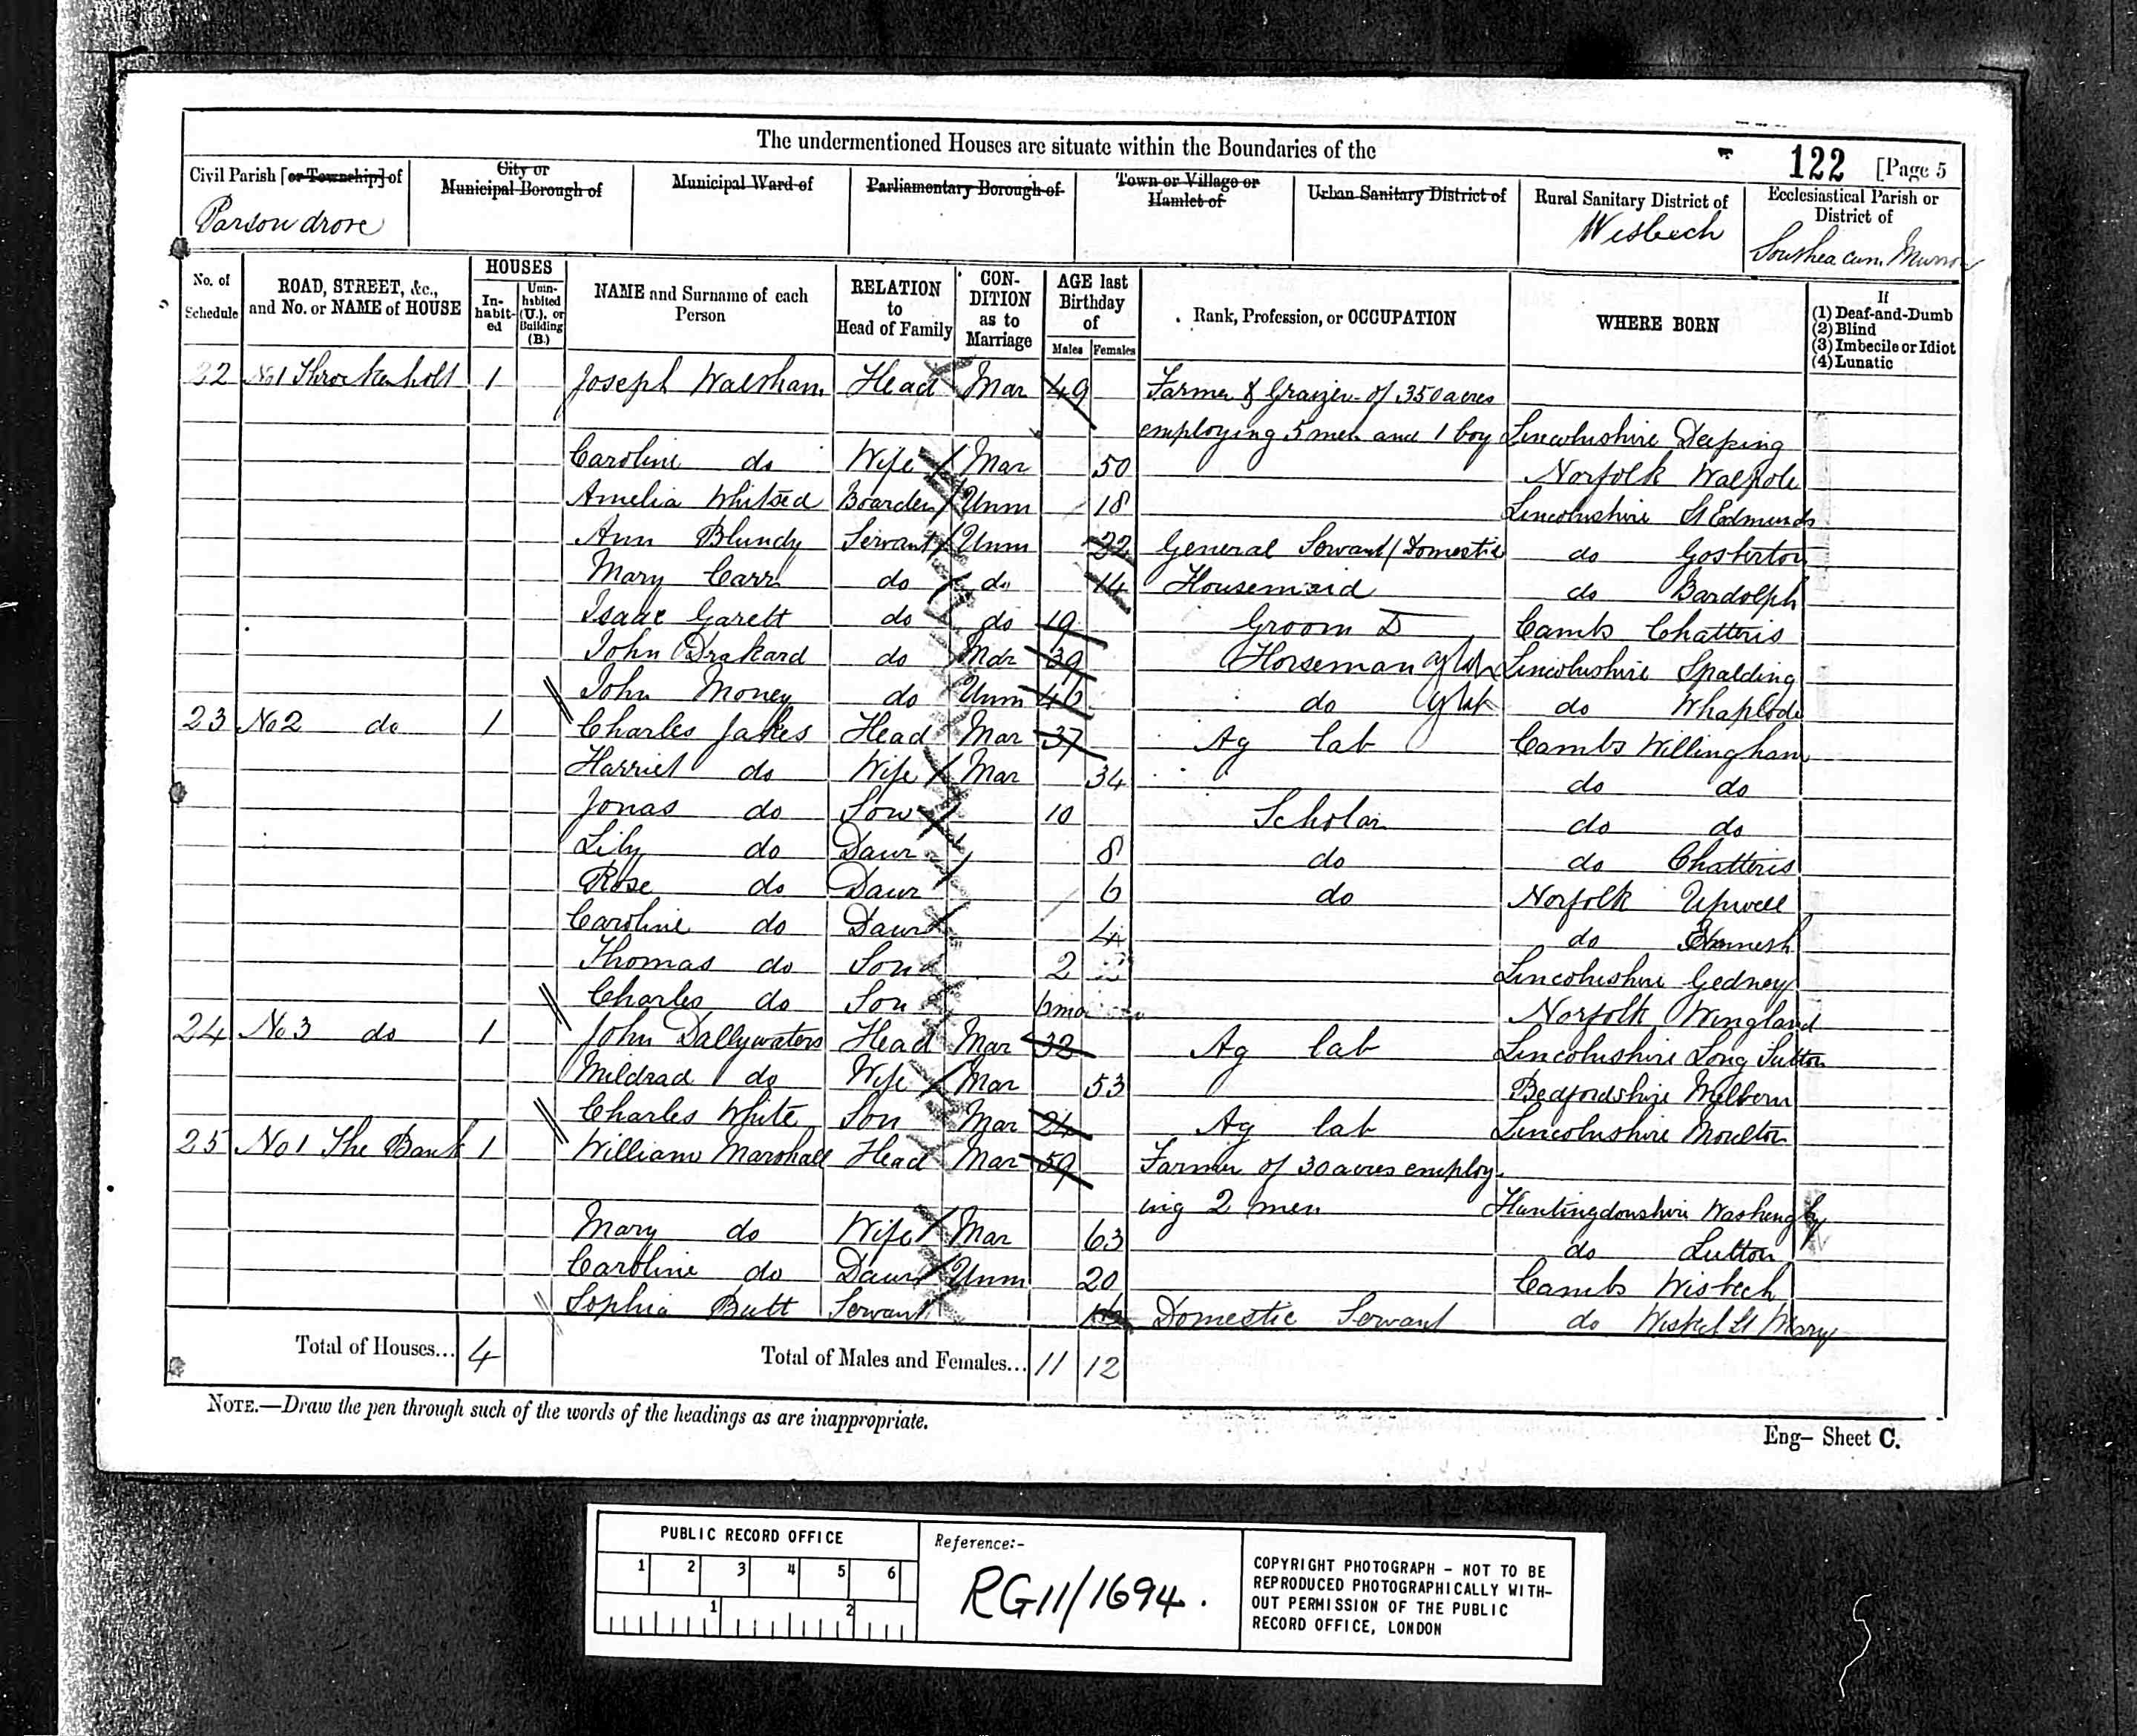 The undermentioned Houses are situate within the Boundaries of the
122 [Page 5
Civil Parish [or Township] of
City or Municipal Borough of
Municipal Ward of
Parliamentary Borough of
Town or Village or Hamlet of
Urban Sanitary District of
Rural Sanitary District of
Ecclesiastical Parish or District of
Parson drove
Wisbech
Southea cum Murrow
No. of Schedule
ROAD, STREET, &c., and No. or NAME of HOUSE
HOUSES
In-habit-ed
Unin-habited (U.), or Building (B.)
NAME and Surname of each Person
RELATION to Head of Family
CON-DITION as to Marriage
AGE last Birthday of
Males Females
Rank, Profession, or OCCUPATION
WHERE BORN
If
(1) Deaf-and-Dumb
(2) Blind
(3) Imbecile or Idiot
(4) Lunatic
22 No 1 Throckenholt 1 Joseph Walsham Head Mar 49 Farmer & Graizer of 350 acres
employing 5 men and 1 boy Lincolnshire Deeping
Caroline do Wife Mar 50 Norfolk Walpole
Amelia Whitsed Boarder Unm 18 Lincolnshire St Edmunds
Ann Blundy Servant Unm 22 General Servant/Domestic do Gosberton
Mary Carr do do 14 Housemaid do Bardolph
Isaac Garett do do 19 Groom D Cambs Chatteris
John Drakard do Mar 39 Horseman ag lab Lincolnshire Spalding
John Money do Unm 46 do ag lab do Whaplode
23 No 2 do 1 Charles Jakes Head Mar 37 Ag lab Cambs Willingham
Harriet do Wife Mar 34 do do
Jonas do Son 10 Scholar do do
Lily do Daur 8 do do Chatteris
Rose do Daur 6 do Norfolk Upwell
Caroline do Daur 4 do
Thomas do Son 2 Lincolnshire Gedney
Charles do Son 6 mo Norfolk Wingland
24 No 3 do 1 John Dallywaters Head Mar 32 Ag lab Lincolnshire Long Sutton
Mildrad do Wife Mar 53 Bedfordshire Melborn
Charles White Son Mar 24 Ag lab Lincolnshire Moulton
25 No 1 The Bank 1 William Marshall Head Mar 59 Farmer of 30 acres employ
ing 2 men Huntingdonshire Washingly
Mary do Wife Mar 63 do Lutton
Caroline do Daur Unm 20 Cambs Wisbech
Sophia Butt Servant Domestic Servant do St Mary
Total of Houses... 4
Total of Males and Females... 11 12
NOTE.—Draw the pen through such of the words of the headings as are inappropriate.
Eng– Sheet C.
PUBLIC RECORD OFFICE
1 2 3 4 5 6
1 2
Reference:-
RG11/1694.
COPYRIGHT PHOTOGRAPH - NOT TO BE
REPRODUCED PHOTOGRAPHICALLY WITH-
OUT PERMISSION OF THE PUBLIC
RECORD OFFICE, LONDON